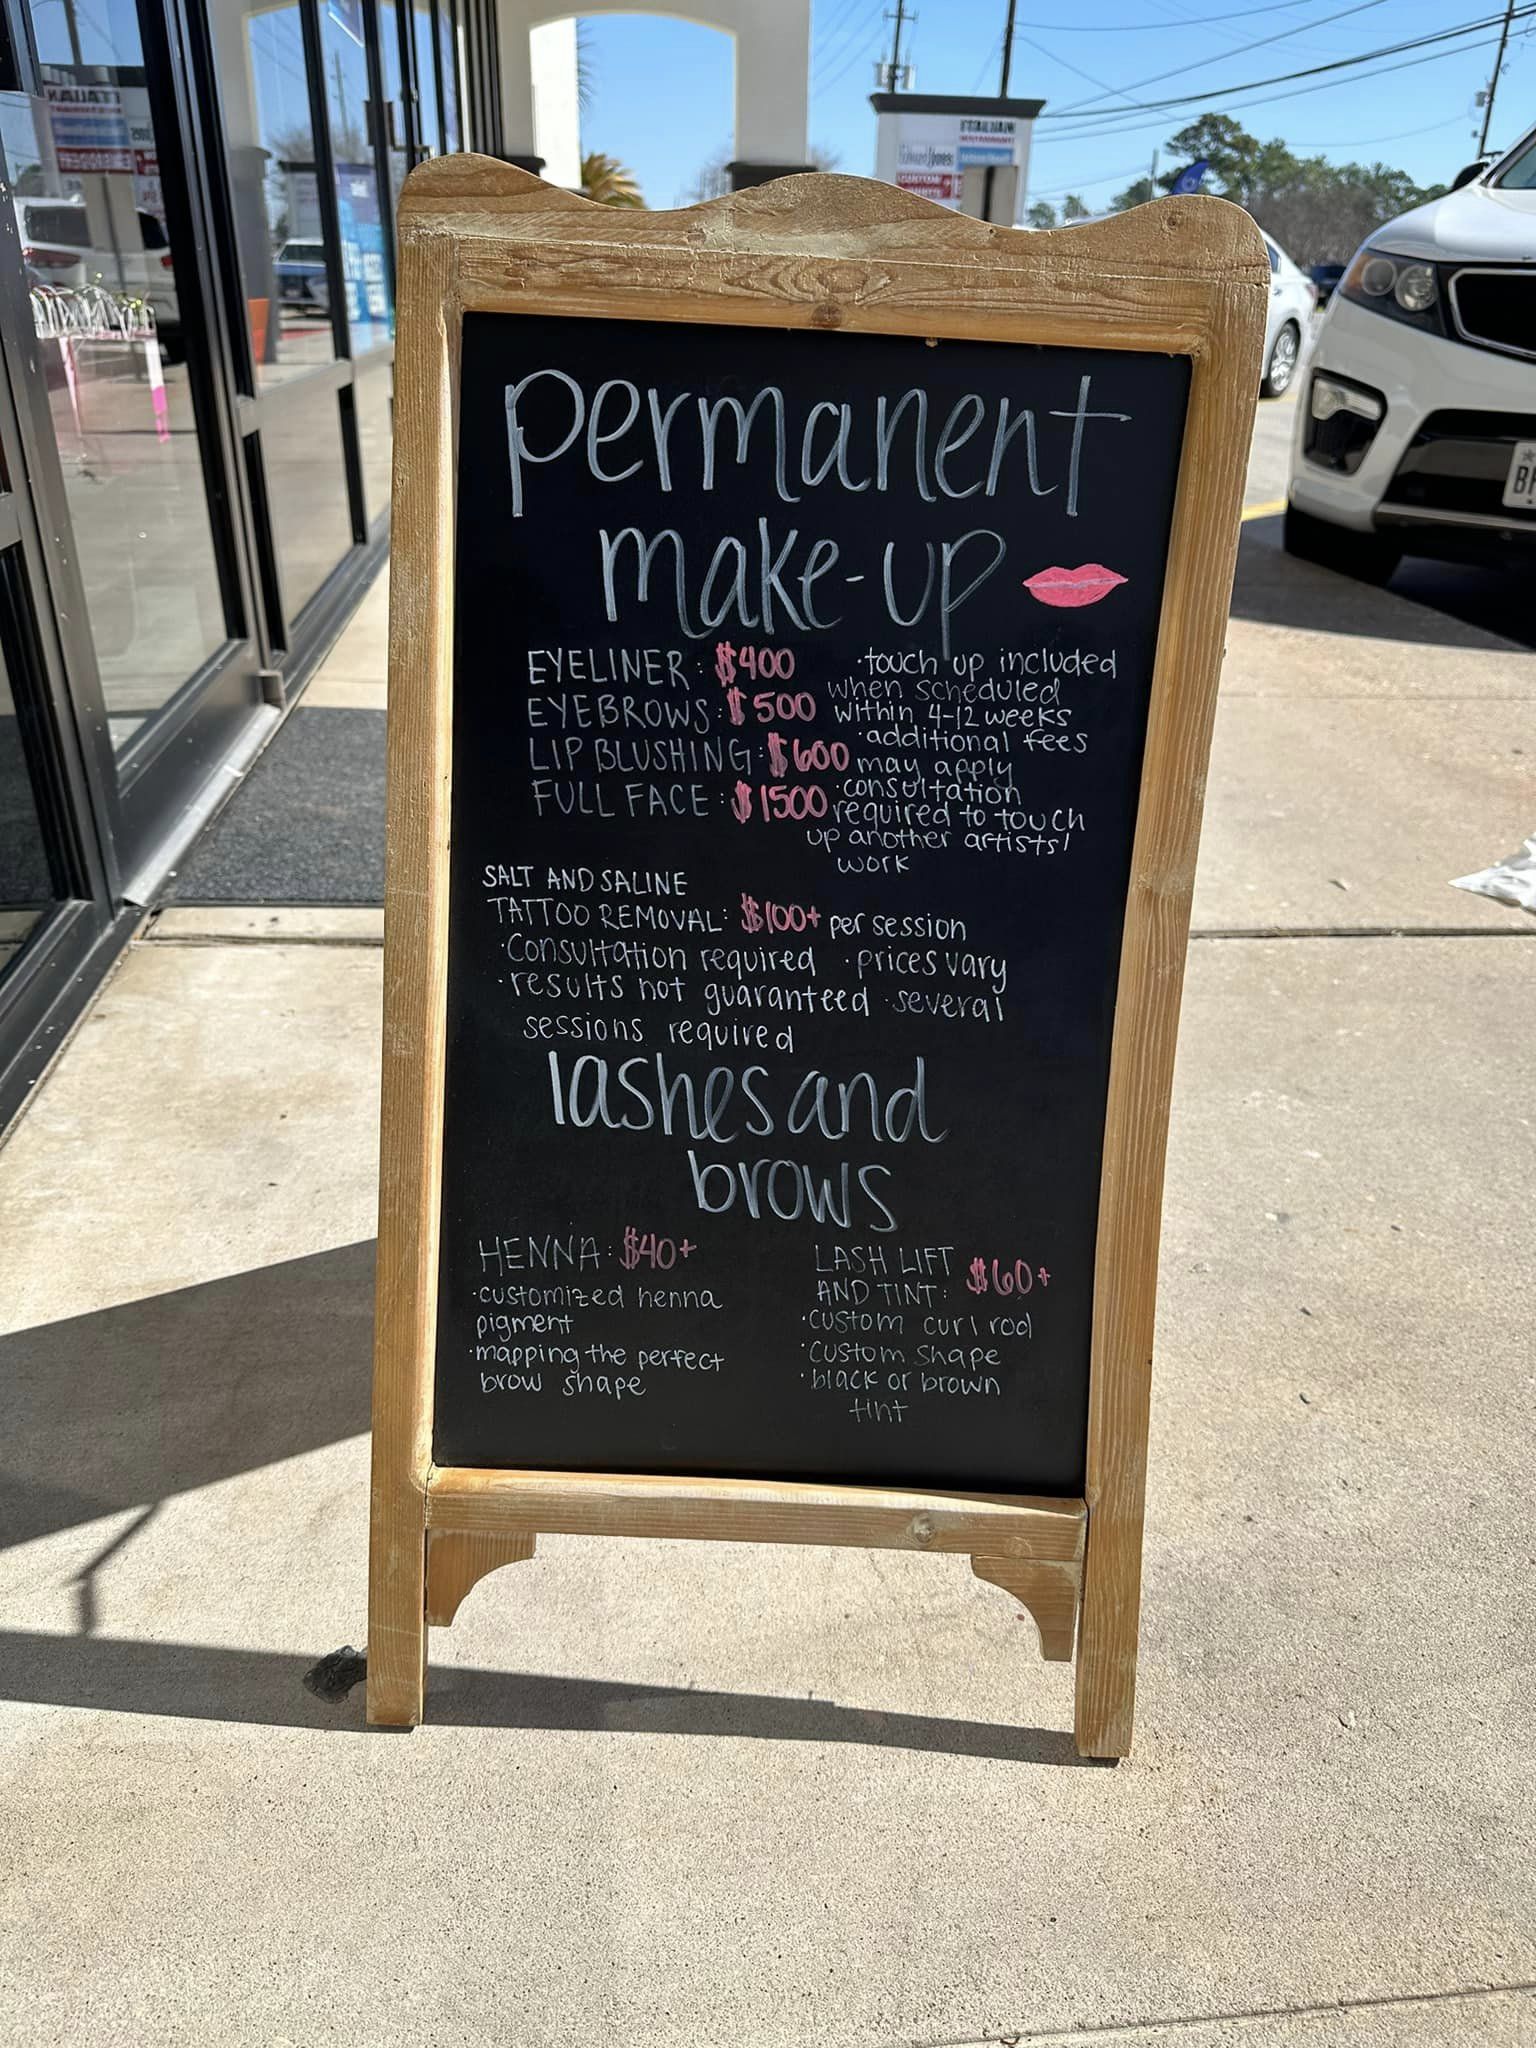 ITALIAN
RESTAURANT
Edward Jones
CUSTOM
permanent
make-up
EYELINER: $400
EYEBROWS: $500
LIP BLUSHING: $600
FULL FACE: $1500
·touch up included
when scheduled
within 4-12 weeks
·additional fees
may apply
·consultation
required to touch
up another artists'
work
SALT AND SALINE
TATTOO REMOVAL: $100+ per session
·Consultation required ·prices vary
·results not guaranteed ·several
sessions required
lashes and
brows
HENNA: $40+
·customized henna
pigment
·mapping the perfect
brow shape
LASH LIFT
AND TINT: $60+
·custom curl rod
·custom shape
·black or brown
tint